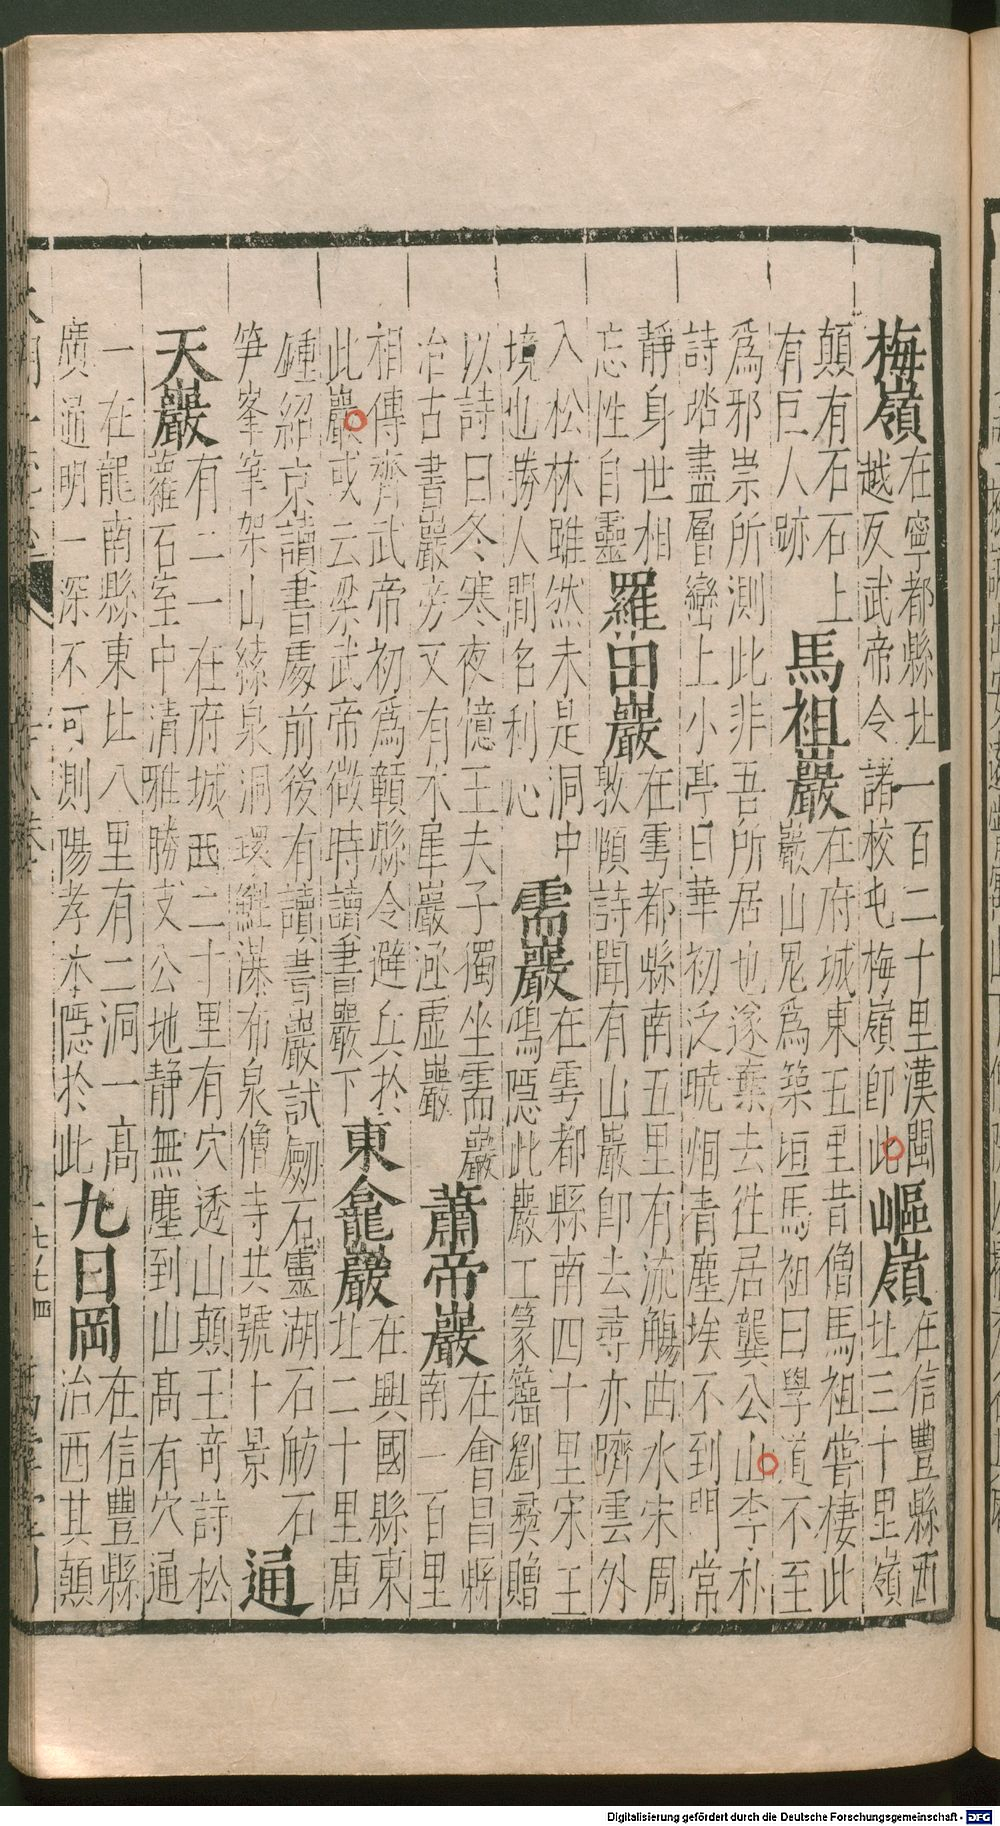 梅嶺
在寧都縣北一百二十里漢閩
越反武帝令諸校屯梅嶺即此
嶇嶺
在信豐縣西
北三十里嶺
顛有石石上
有巨人跡
馬祖巖
在府城東五里昔僧馬祖嘗棲此
巖山鬼為築垣馬祖曰學道不至
為邪祟所測此非吾所居也遂棄去徃居龔公山李朴
詩踏盡層巒上小亭日華初泛曉烟青塵埃不到門常
靜身世相
忘性自靈
羅田巖
在雩都縣南五里有流觴曲水宋周
敦頤詩聞有山巖即去尋亦躋雲外
入松林雖然未是洞中
境也勝人間名利心
需巖
在雩都縣南四十里宋王
鴻隱此巖工篆籀劉彛贈
以詩曰冬寒夜憶王夫子獨坐需巖
冶古書巖旁又有木犀巖極虛巖
蕭帝巖
在會昌縣
南一百里
相傳齊武帝初為贛縣令避兵於
此巖或云梁武帝微時讀書巖下
東龕巖
在興國縣東
北二十里唐
鍾紹京讀書處前後有讀書巖試劒石靈湖石舫石
笋峯筆架山泉洞環瀑布泉僧寺共號十景
通
天巖
有二一在府城西二十里有穴透山顛王竒詩松
蘿石室中清雅勝支公地静無塵到山髙有穴通
一在龍南縣東北八里有二洞一髙
廣通明一深不可測陽孝本隱於此
九日岡
在信豐縣
治西其顛
Digitalisierung gefördert durch die Deutsche Forschungsgemeinschaft - DFG